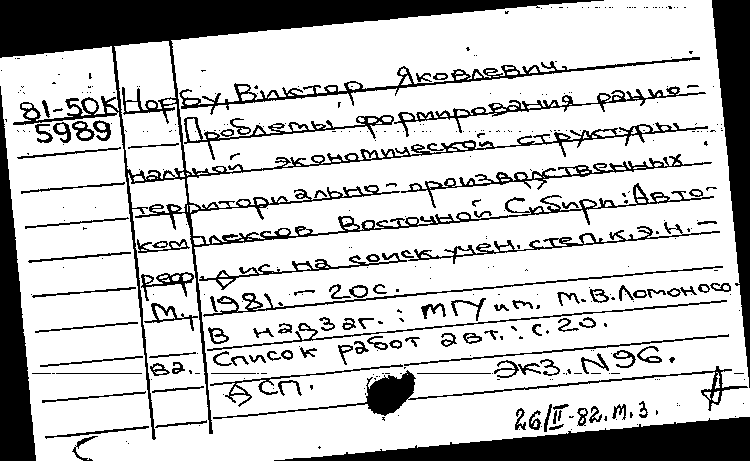 81-50К Норбу, Виктор Яковлевич.
5989 Проблемы формирования рацио-
нальной экономической структуры
территориально-производственных
комплексов Восточной Сибири: Авто-
реф. дис. на соиск. учен. степ. к.э.н. -
М., 1981. - 20с.
В надзаг.: МГУ им. М.В.Ломоносо-
ва. Список работ авт.: с.20.
ДСП. Экз. N96.
26/II-82.м.з.